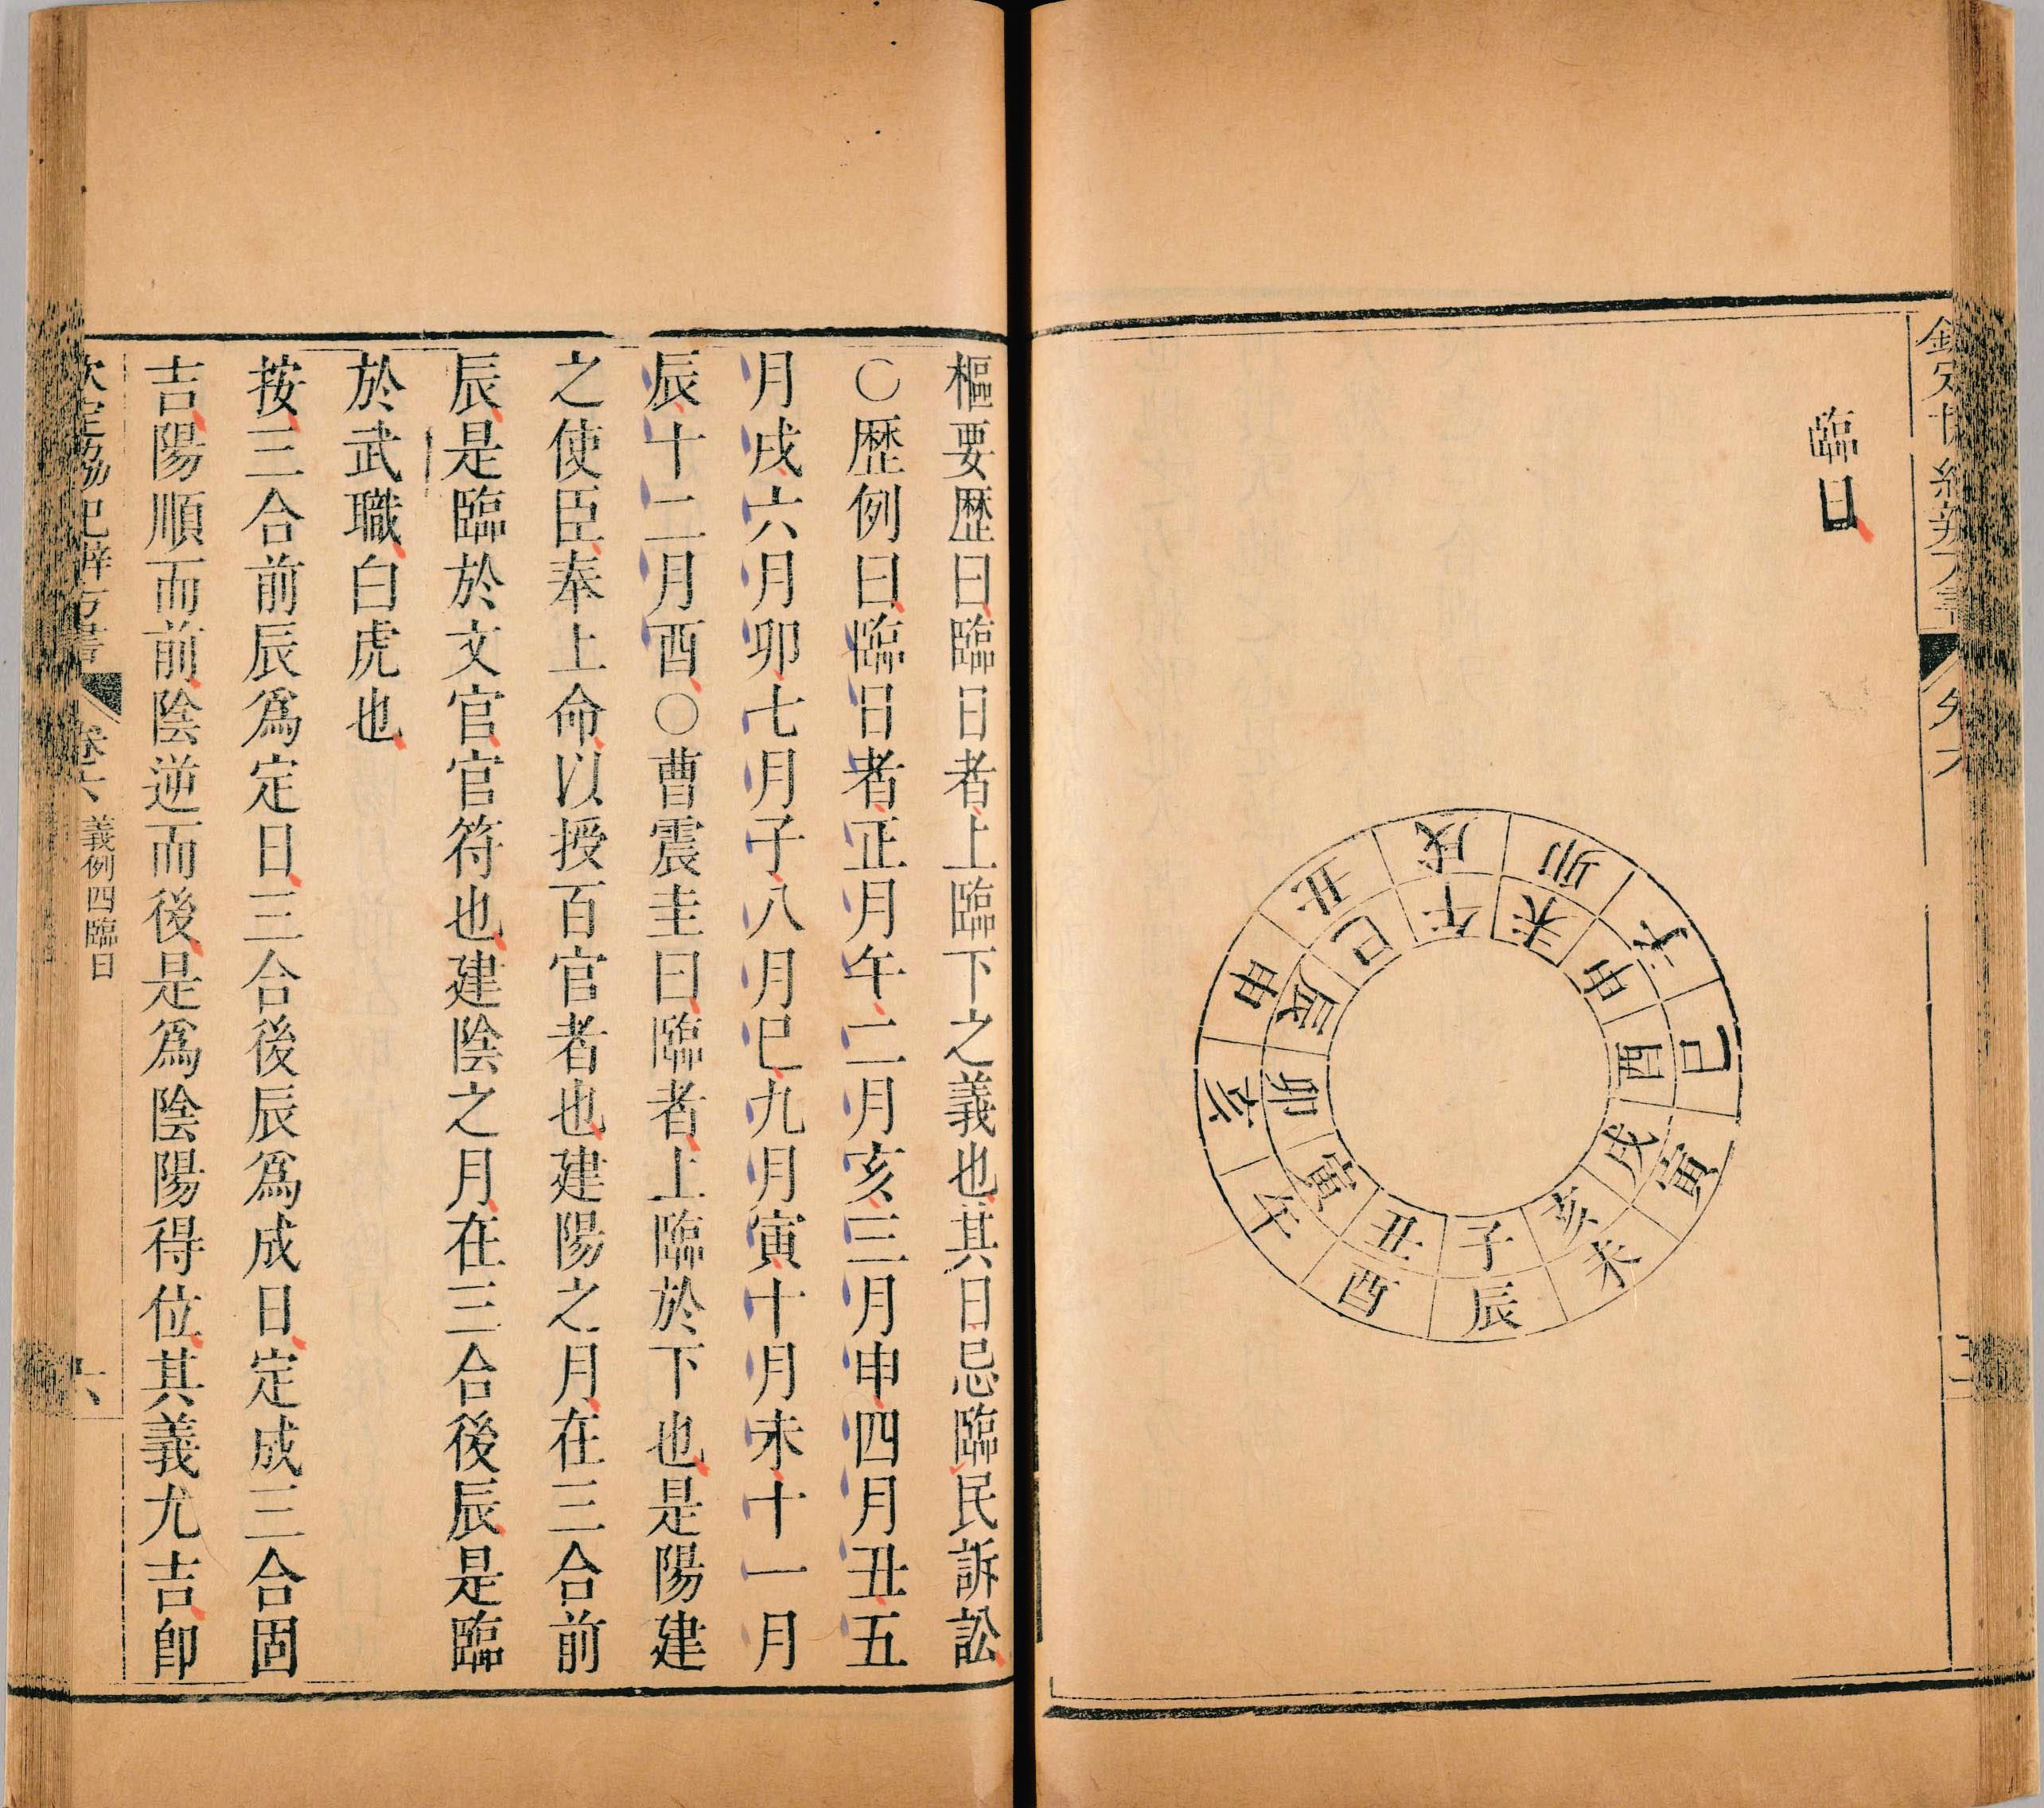 臨日
戌 卯 子 巳 寅 未 辰 酉 午 亥 申 丑
午 未 申 酉 戌 亥 子 丑 寅 卯 辰 巳
樞要歴曰臨日者上臨下之義也其日忌臨民訴訟
○歴例曰臨日者正月午二月亥三月申四月丑五
月戌六月卯七月子八月巳九月寅十月未十一月
辰十二月酉○曹震圭曰臨者上臨於下也是陽建
之使臣奉上命以授百官者也建陽之月在三合前
辰是臨於文官官符也建陰之月在三合後辰是臨
於武職白虎也
按三合前辰爲定日三合後辰爲成日定成三合固
吉陽順而前陰逆而後是爲陰陽得位其義尤吉卽
欽定協紀辨方書 卷六 義例四臨日